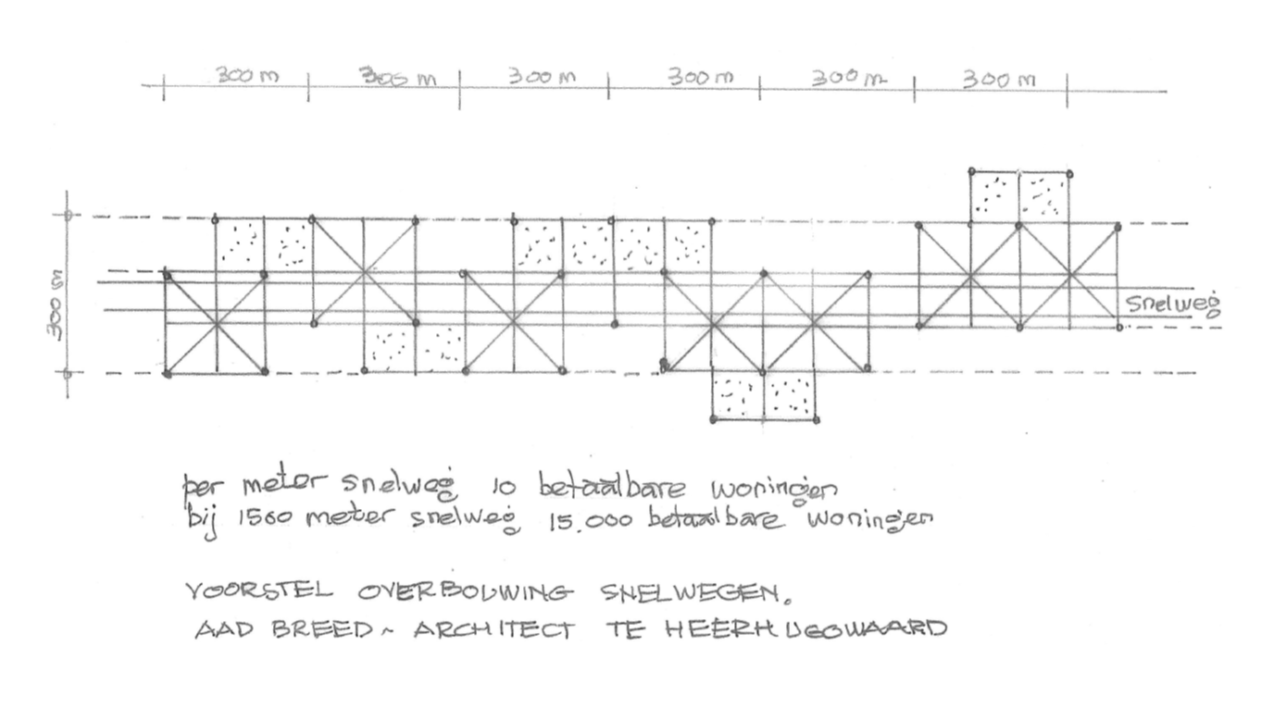 300 m 300 m 300 m 300 m 300 m 300 m
300 m
Snelweg
per meter snelweg 10 betaalbare woningen
bij 1500 meter snelweg 15.000 betaalbare woningen
VOORSTEL OVERBOUWING SNELWEGEN.
AAD BREED ~ ARCHITECT TE HEERHUGOWAARD